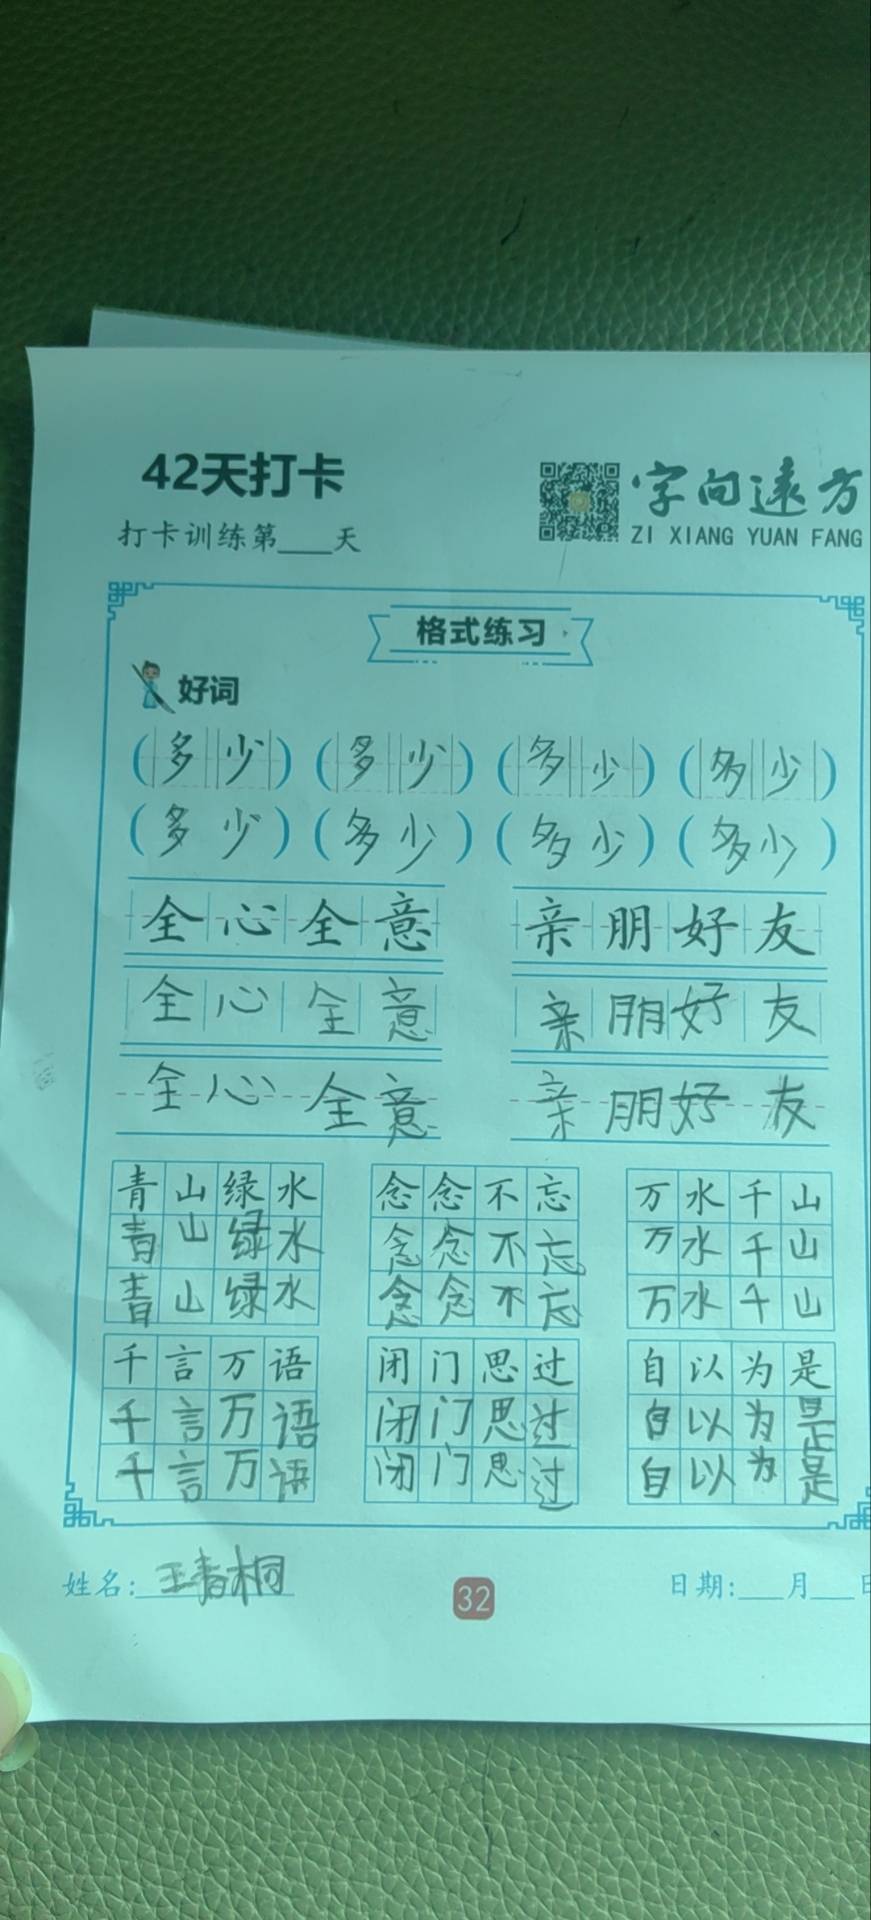 42天打卡
字向远方
ZI XIANG YUAN FANG
打卡训练第___天
格式练习
好词
(多少)(多少)(多少)(多少)
(多少)(多少)(多少)(多少)
全心全意 亲朋好友
全心全意 亲朋好友
全心全意 亲朋好友
青山绿水 念念不忘 万水千山
青山绿水 念念不忘 万水千山
青山绿水 念念不忘 万水千山
千言万语 闭门思过 自以为是
千言万语 闭门思过 自以为是
千言万语 闭门思过 自以为是
姓名:王青桐
32
日期:___月___日